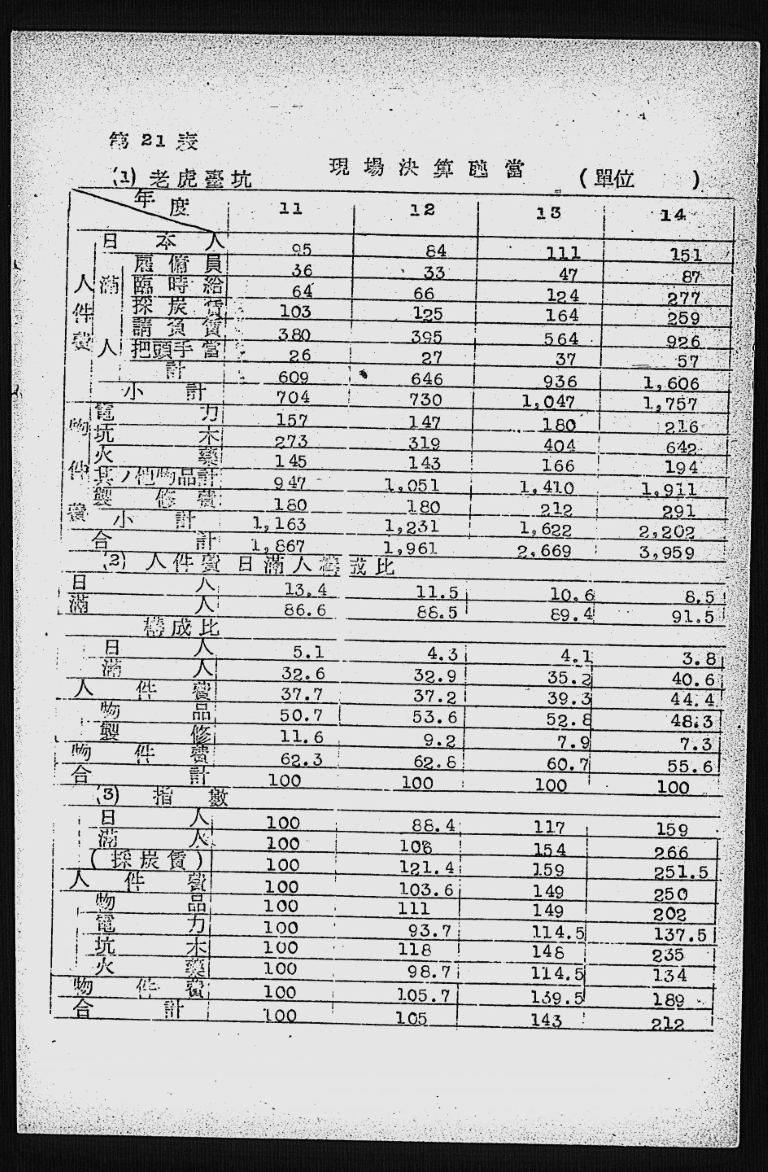 第 21 表
現場決算瓲當
(1) 老虎臺坑 (單位 )
年度 11 12 13 14
日本人 95 84 111 151
滿人 雇傭員 36 33 47 87
臨時給 64 66 124 277
採炭賃 103 125 164 259
請負賃 380 395 564 926
把頭手當 26 27 37 57
計 609 646 936 1,606
人件費 小計 704 730 1,047 1,757
電力 157 147 180 216
坑木 273 319 404 642
火藥 145 143 166 194
其ノ他物品計 947 1,051 1,410 1,911
製修費 180 180 212 291
物件費 小計 1,163 1,231 1,622 2,202
合計 1,867 1,961 2,669 3,959
(2) 人件費 日滿人構成比
日人 13.4 11.5 10.6 8.5
滿人 86.6 88.5 89.4 91.5
構成比
日人 5.1 4.3 4.1 3.8
滿人 32.6 32.9 35.2 40.6
人件費 37.7 37.2 39.3 44.4
物品 50.7 53.6 52.8 48.3
製修 11.6 9.2 7.9 7.3
物件費 62.3 62.8 60.7 55.6
合計 100 100 100 100
(3) 指數
日人 100 88.4 117 159
滿人 100 106 154 266
(採炭賃) 100 121.4 159 251.5
人件費 100 103.6 149 250
物品 100 111 149 202
電力 100 93.7 114.5 137.5
坑木 100 118 148 235
火藥 100 98.7 114.5 134
物件費 100 105.7 139.5 189
合計 100 105 143 212